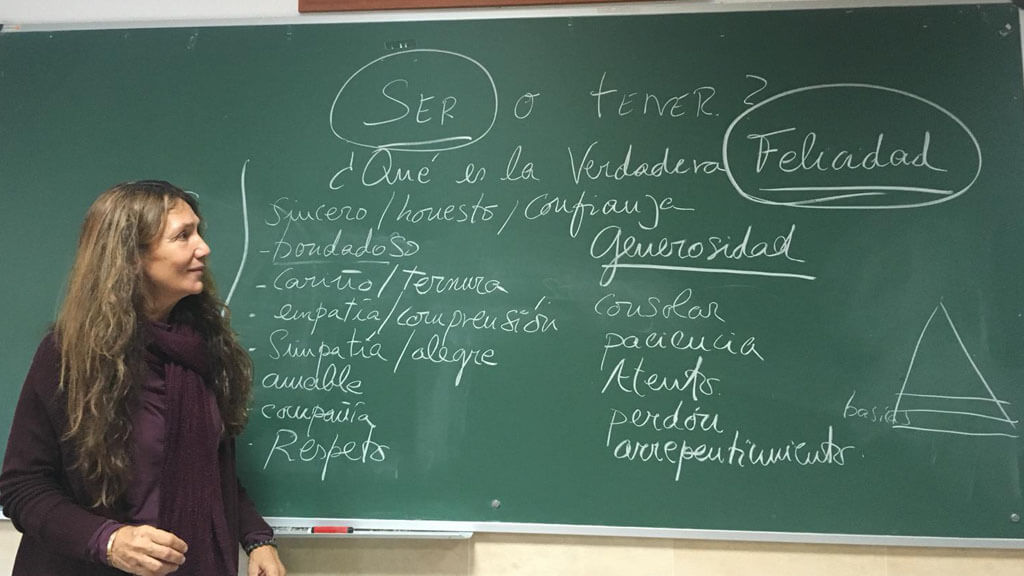 SER o TENER?
¿Qué es la Verdadera Felicidad
Sincero/honesto/Confianza
- bondadoso
- Cariño/Ternura
- empatía/comprensión
- Simpatía/alegre
amable
compañía
- Respeto
Generosidad
consolar
paciencia
Atento.
perdón
arrepentimiento.
basicas